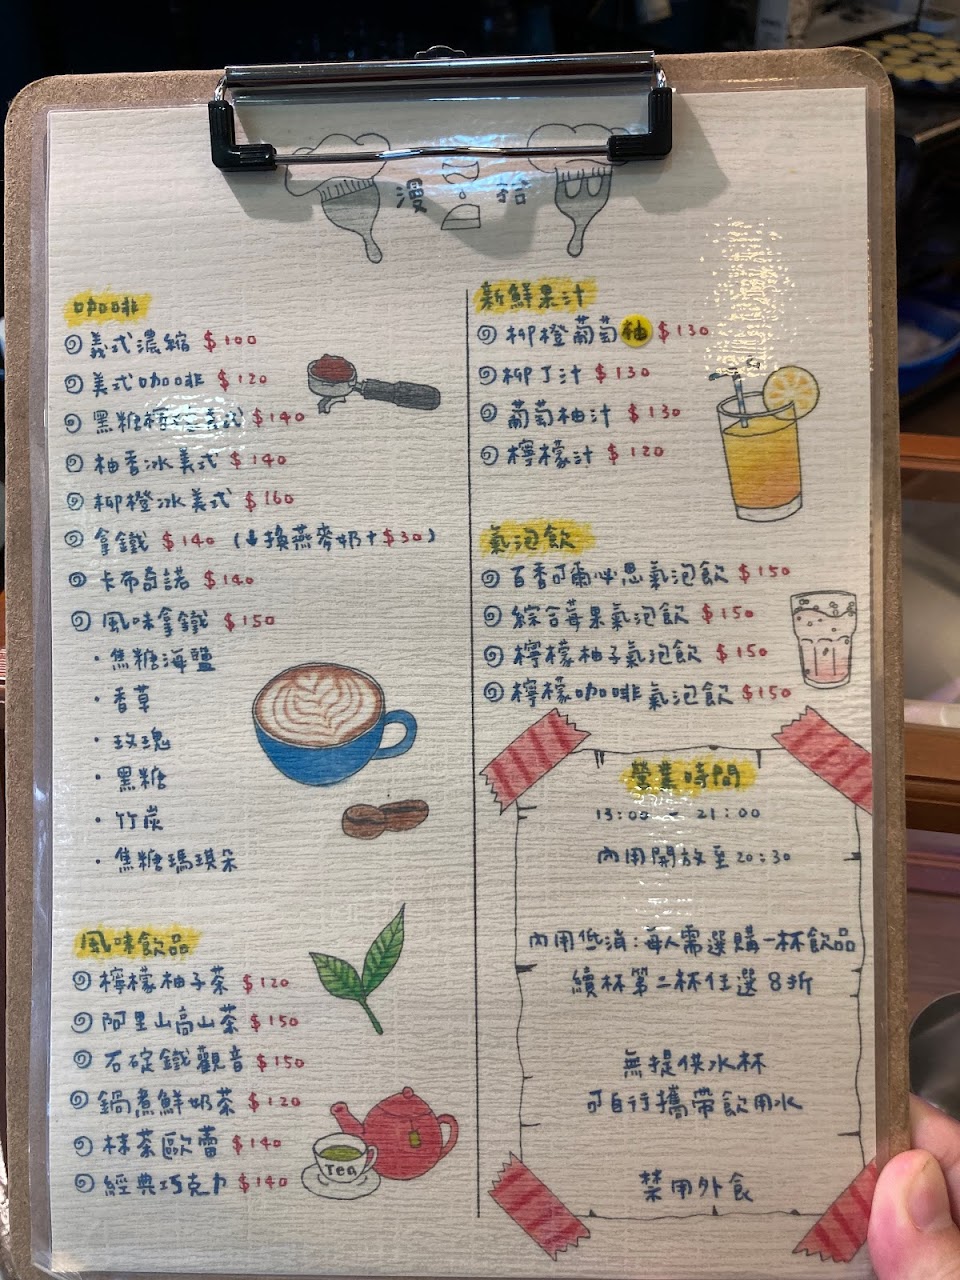 漫 拾
咖啡
義式濃縮 $100
美式咖啡 $120
黑糖 美式 $140
柚香冰美式 $140
柳橙冰美式 $160
拿鐵 $140 (⬇換燕麥奶+$30)
卡布奇諾 $140
風味拿鐵 $150
・焦糖海鹽
・香草
・玫瑰
・黑糖
・竹炭
・焦糖瑪琪朵
風味飲品
檸檬柚子茶 $120
阿里山高山茶 $150
石碇鐵觀音 $150
鍋煮鮮奶茶 $120
抹茶歐蕾 $140
經典巧克力 $140
Tea
新鮮果汁
柳橙葡萄柚 $130
柳丁汁 $130
葡萄柚汁 $130
檸檬汁 $120
氣泡飲
百香可爾必思氣泡飲 $150
綜合莓果氣泡飲 $150
檸檬柚子氣泡飲 $150
檸檬咖啡氣泡飲 $150
營業時間
13:00 ~ 21:00
內用開放至20:30
內用低消:每人需選購一杯飲品
續杯第二杯任選8折
無提供水杯
可自行攜帶飲用水
禁用外食